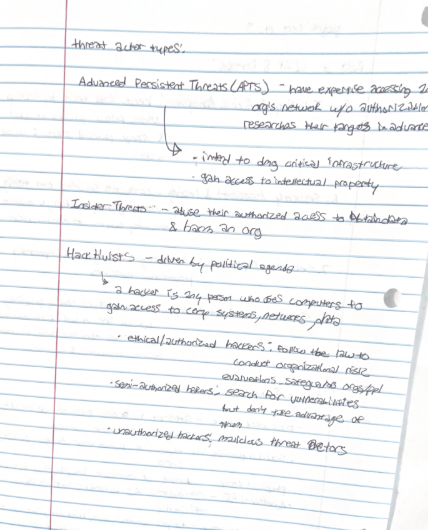 threat actor types:
Advanced Persistent Threats (APTS) - have expertise accessing
org's network w/o authorization
researchas their targets in advance
- intend to dmg critical infrastructure
- gain access to intellectual property
Insider Threats - abuse their authorized access to obtain data
& harm an org
Hacktivists - driven by political agenda
a hacker is any person who uses computers to
gain access to comp systems, networks, data
• ethical/authorized hackers: follow the law to
conduct organizational risk
evaluations. safeguards orgs/ppl
• semi-authorized hackers: search for vulnerabilities
but don't take advantage of
them
• unauthorized hackers: malicious threat actors